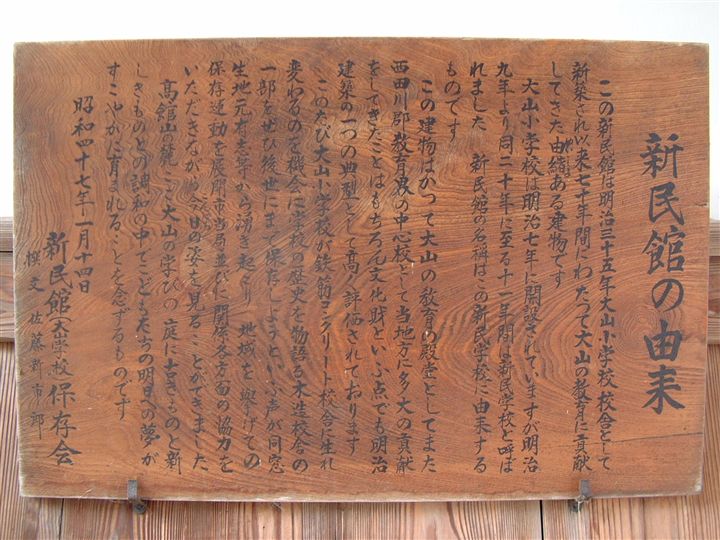 新民館の由来
この新民館は明治三十五年大山小学校校舎として
新築され以来七十年間にわたって大山の教育に貢献
してきた由緒ある建物です
大山小学校は明治七年に開設されていますが明治
九年より同二十年に至る十一年間は新民学校と呼ば
れました 新民館の名称はこの新民学校に由来する
ものです
この建物はかつて大山の教育の殿堂としてまた
西田川郡教育界の中心校として当地方に多大の貢献
をしてきたことはもちろん文化財といふ点でも明治
建築の一つの典型として高く評価されております
このたび大山小学校が鉄筋コンクリート校舎に生れ
変わるのを機会に学校の歴史を物語る木造校舎の
一部をぜひ後世にまで保存しようという声が同窓
生地元有志等から湧き起こり 地域を挙げての
保存運動を展開市当局並びに関係各方面の協力を
いただきながら今日の姿を見ることができました
高館山麓こゝ大山の学びの庭に古きものと新
しきものとの調和の中で子どもたちの明日への夢が
すこやかに育まれることを念ずるものです
昭和四十七年一月十四日
新民館(大山小学校)保存会
撰文 佐藤新市郎